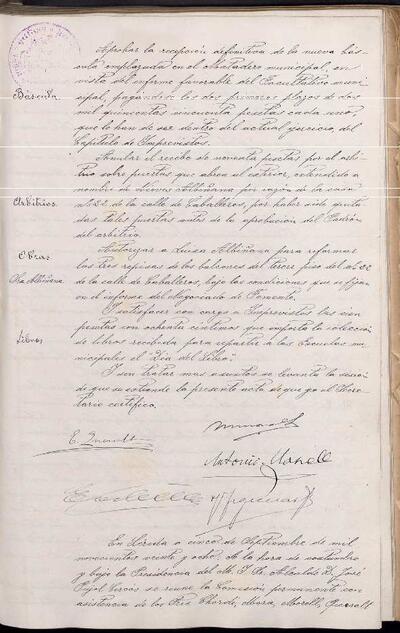 Aprobar la recepción definitiva de la nueva bás-
cula emplazada en el Matadero municipal, en
vista del informe favorable del Facultativo muni-
Báscula.
cipal, pagándose los dos primeros plazos de dos
mil quinientas cincuenta pesetas cada uno,
que lo han de ser dentro del actual ejercicio, del
Capítulo de Imprevistos.
Anular el recibo de noventa pesetas por el arbi-
trio sobre puertas que abren al exterior, extendido a
nombre de Albiñana por razón de la casa
Arbitrios.
nº 22 de la calle de Caballeros, por haber sido quita
das tales puertas antes de la aprobación del Padrón
del arbitrio.
Obras
Autorizar a Luisa Albiñana para reformar
las tres repisas de los balcones del tercer piso del nº 22
Albiñana.
de la calle de Caballeros, bajo las condiciones que se fijan
en el informe del Negociado de Fomento.
Satisfacer con cargo a Imprevistos las cien
pesetas con ochenta céntimos que importa la colección
Libros
de libros recibida para repartir a las Escuelas mu-
nicipales el "Día del Libro".
Y sin tratar mas asuntos se levanta la sesión
de que se extiende la presente acta de que yo el Secre-
tario certifico.
Antonio Morell
En Lérida a cinco de Septiembre de mil
novecientos veinte y ocho, a la hora de costumbre
y bajo la Presidencia del M. I. Sr. Alcalde D. José
Pujol Cercós se reune la Comisión permanente con
asistencia de los Sres. Mora, Morell,